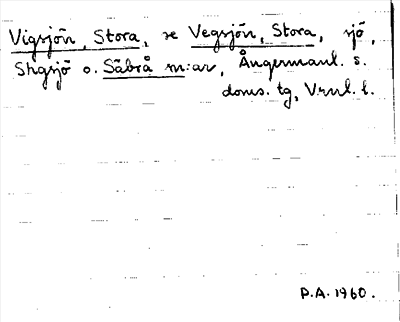 Vigsjön, Stora, se Vegsjön, Stora, sjö,
Stigsjö o. Säbrå m:ar, Ångermanl. s.
doms. tg, V:nrl. l.
P.A. 1960.